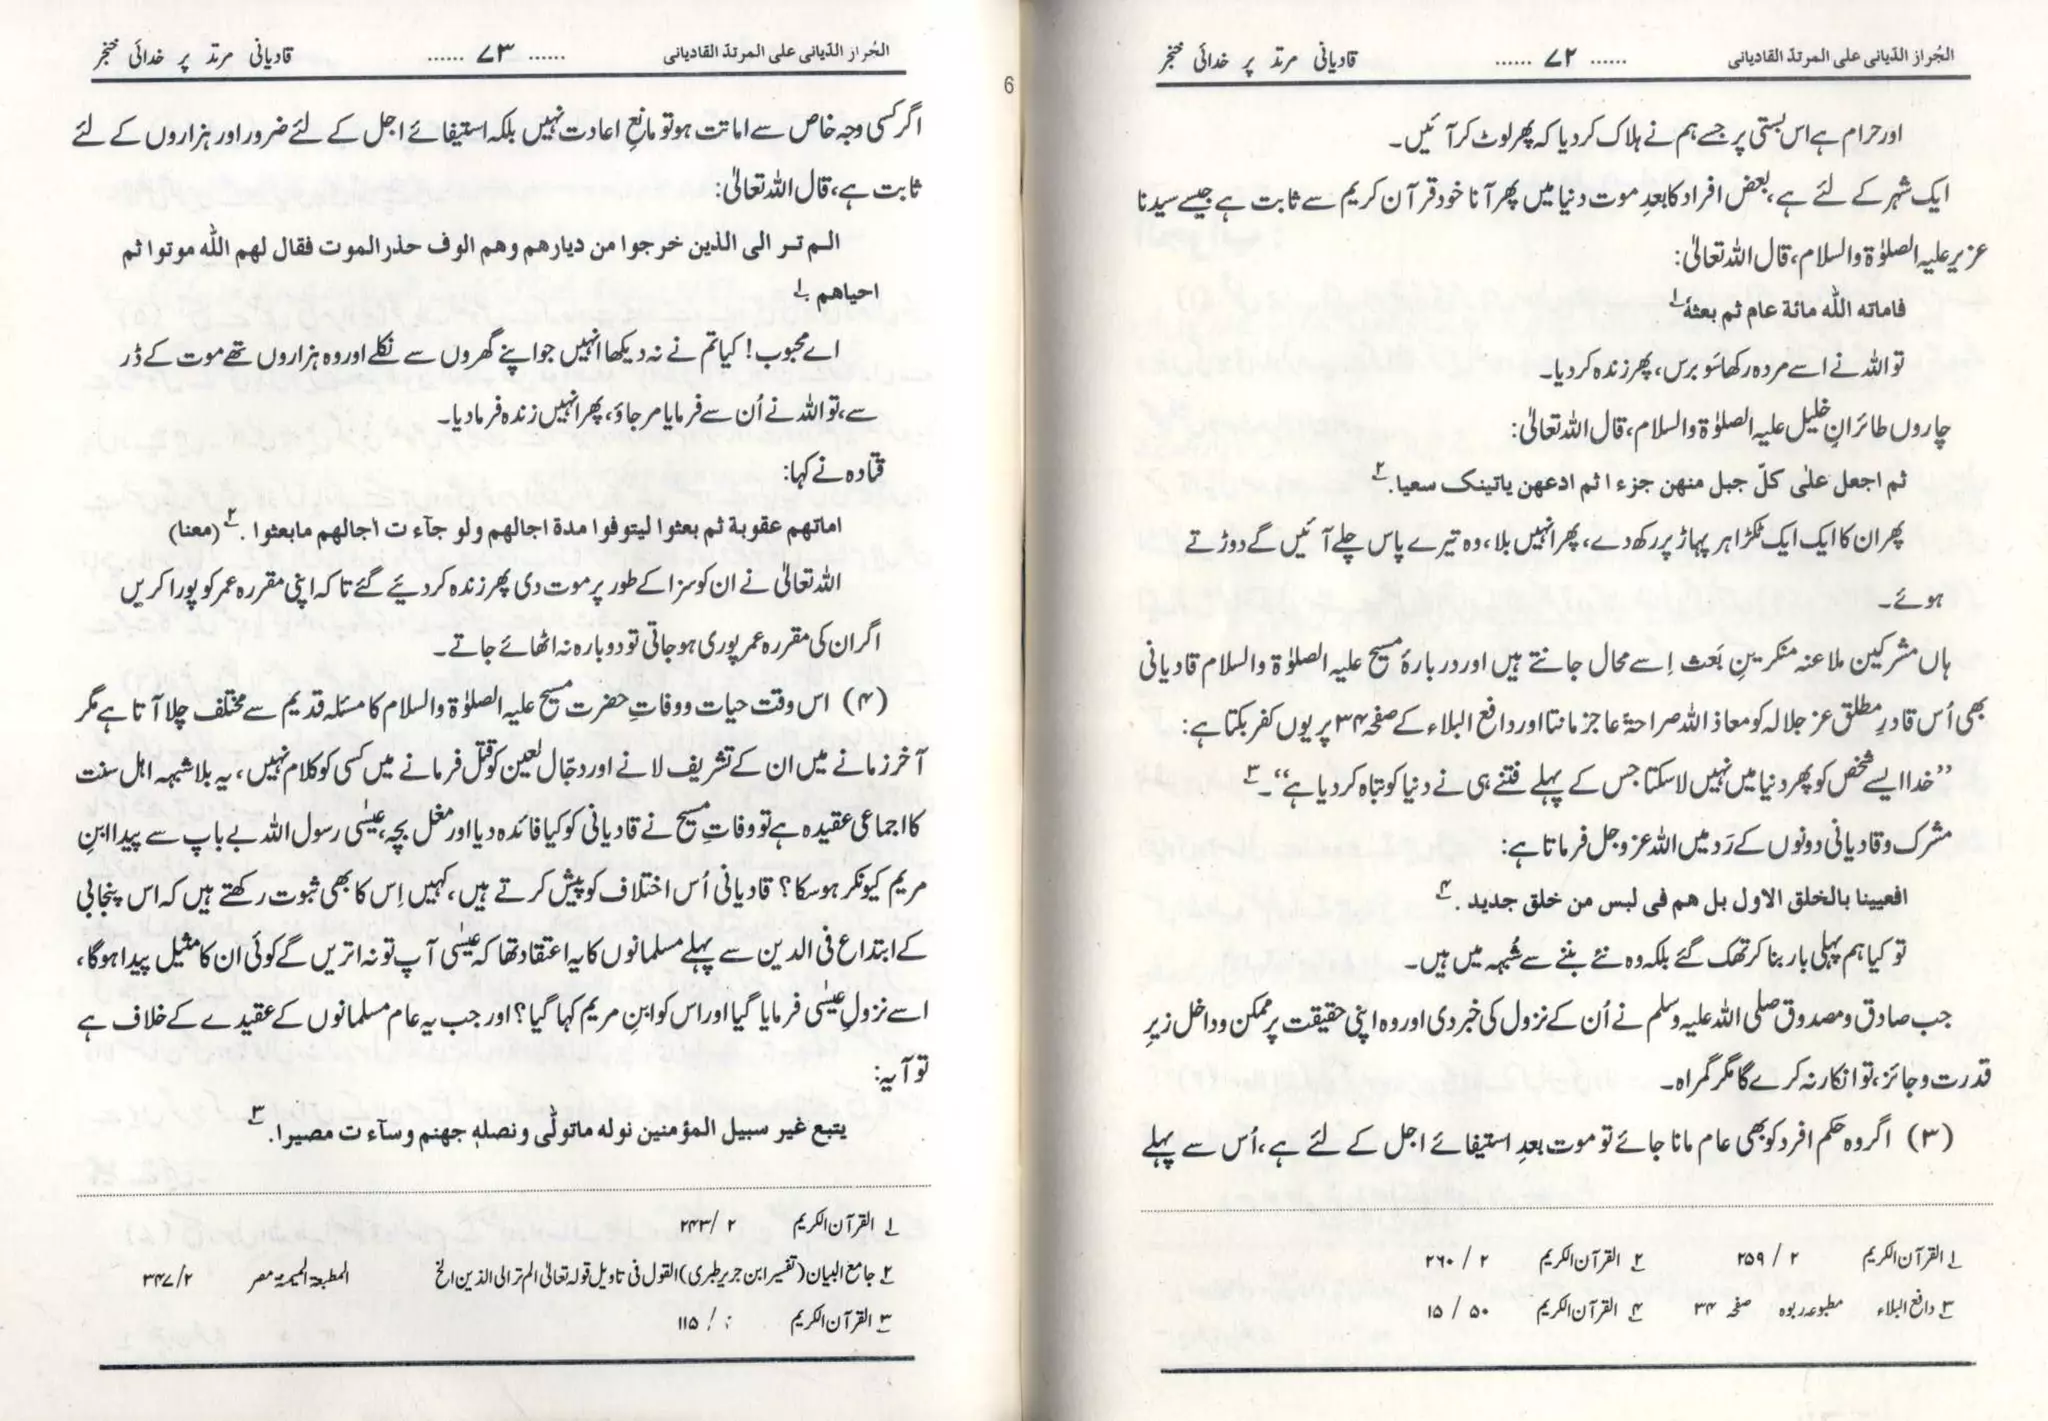 الجُراز الدّیانی علی المرتدّ القادیانی ...... ۷۲ ...... قادیانی مرتد پر خدائی خنجر
اور حرام ہے اس بستی پر جسے ہم نے ہلاک کر دیا کہ پھر لوٹ کر آئیں۔
ایک شہر کے لئے ہے، بعض افراد کا بعدِ موت دنیا میں پھر آنا خود قرآن کریم سے ثابت ہے جیسے سیدنا
عزیر علیہ الصلوٰۃ والسلام، قال اللہ تعالیٰ:
فاماته الله مائة عام ثم بعثهٗ ۱
تو اللہ نے اسے مردہ رکھا سَو برس، پھر زندہ کر دیا۔
چاروں طائرانِ خلیل علیہ الصلوٰۃ والسلام، قال اللہ تعالیٰ:
ثم اجعل علیٰ کلّ جبل منهن جزء ا ثم ادعهن یاتینک سعیا. ۲
پھر ان کا ایک ایک ٹکڑا ہر پہاڑ پر رکھ دے، پھر انہیں بلا، وہ تیرے پاس چلے آئیں گے دوڑتے
ہوئے۔
ہاں مشرکین ملاعنہ منکرینِ بَعث اِسے محال جانتے ہیں اور دربارۂ مسیح علیہ الصلوٰۃ والسلام قادیانی
بھی اُس قادرِ مطلق عز جلالہ کو معاذ اللہ صراحۃً عاجز مانتا اور دافع البلاء کے صفحہ ۳۴ پر یوں کفر بکتا ہے:
”خدا ایسے شخص کو پھر دنیا میں نہیں لا سکتا جس کے پہلے فتنے ہی نے دنیا کو تباہ کر دیا ہے“۔ ۳
مشرک و قادیانی دونوں کے رَد میں اللہ عزوجل فرماتا ہے:
افعیینا بالخلق الاول بل هم فی لبس من خلق جدید . ۴
تو کیا ہم پہلی بار بنا کر تھک گئے بلکہ وہ نئے بننے سے شُبہہ میں ہیں۔
جب صادق و مصدوق صلی اللہ علیہ وسلم نے اُن کے نزول کی خبر دی اور وہ اپنی حقیقت پر ممکن و داخل زیرِ
قدرت و جائز، تو انکار نہ کرے گا مگر گمراہ۔
(۳) اگر وہ حکم افراد کو بھی عام مانا جائے تو موت بعدِ استیفائے اجل کے لئے ہے، اُس سے پہلے
۱ القرآن الکریم ۲ / ۲۵۹ ۲ القرآن الکریم ۲ / ۲۶۰
۳ دافع البلاء مطبوعہ ربوہ صفحہ ۳۴ ۴ القرآن الکریم ۵۰ / ۱۵
6
الجُراز الدّیانی علی المرتدّ القادیانی ...... ۷۳ ...... قادیانی مرتد پر خدائی خنجر
اگر کسی وجہ خاص سے اماتت ہو تو مانعِ اعادت نہیں بلکہ استیفائے اجل کے لئے ضرور اور ہزاروں کے لئے
ثابت ہے، قال اللہ تعالیٰ:
الم تر الی الذین خرجوا من دیارهم وهم الوف حذر الموت فقال لهم الله موتوا ثم
احیاهم ۱
اے محبوب! کیا تم نے نہ دیکھا انہیں جو اپنے گھروں سے نکلے اور وہ ہزاروں تھے موت کے ڈر
سے، تو اللہ نے اُن سے فرمایا مر جاؤ، پھر انہیں زندہ فرما دیا۔
قتادہ نے کہا:
اماتهم عقوبة ثم بعثوا لیتوفوا مدة اجالهم ولو جآء ت اجالهم مابعثوا . ۲ (معنا)
اللہ تعالیٰ نے ان کو سزا کے طور پر موت دی پھر زندہ کر دیئے گئے تا کہ اپنی مقررہ عمر کو پورا کریں
اگر ان کی مقررہ عمر پوری ہو جاتی تو دوبارہ نہ اٹھائے جاتے۔
(۴) اس وقت حیات و وفاتِ حضرت مسیح علیہ الصلوٰۃ والسلام کا مسئلہ قدیم سے مختلف چلا آتا ہے مگر
آخر زمانے میں ان کے تشریف لانے اور دجّال لعین کو قتل فرمانے میں کسی کو کلام نہیں، یہ بلا شبہہ اہل سنت
کا اجماعی عقیدہ ہے تو وفاتِ مسیح نے قادیانی کو کیا فائدہ دیا اور مغل بچہ، عیسٰی رسول اللہ بے باپ سے پیدا ابنِ
مریم کیونکر ہو سکا؟ قادیانی اُس اختلاف کو پیش کرتے ہیں، کہیں اِس کا بھی ثبوت رکھتے ہیں کہ اس پنجابی
کے ابتداع فی الدین سے پہلے مسلمانوں کا یہ اعتقاد تھا کہ عیسٰی آپ تو نہ اتریں گے کوئی ان کا مثیل پیدا ہوگا،
اسے نزولِ عیسٰی فرمایا گیا اور اس کو ابنِ مریم کہا گیا؟ اور جب یہ عام مسلمانوں کے عقیدے کے خلاف ہے
تو آیہ:
یتبع غیر سبیل المؤمنین نوله ماتولّٰی ونصله جهنم وسآء ت مصیرا. ۳
۱ القرآن الکریم ۲ /۲۴۳
۲ جامع البیان (تفسیر ابن جریر طبری) القول فی تاویل قولہ تعالیٰ الم تر الی الذین الخ المطبعۃ المیمنۃ مصر ۲/ ۳۴۷
۳ القرآن الکریم / ۱۱۵